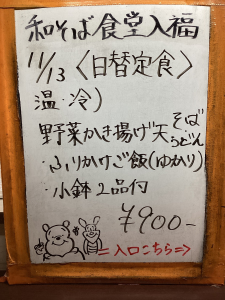 和そば食堂入福
11/13〈日替定食〉
温・冷)
野菜かき揚げ天そば
うどん
・ふりかけご飯(ゆかり)
・小鉢2品付
¥900-
=入口こちら⇒